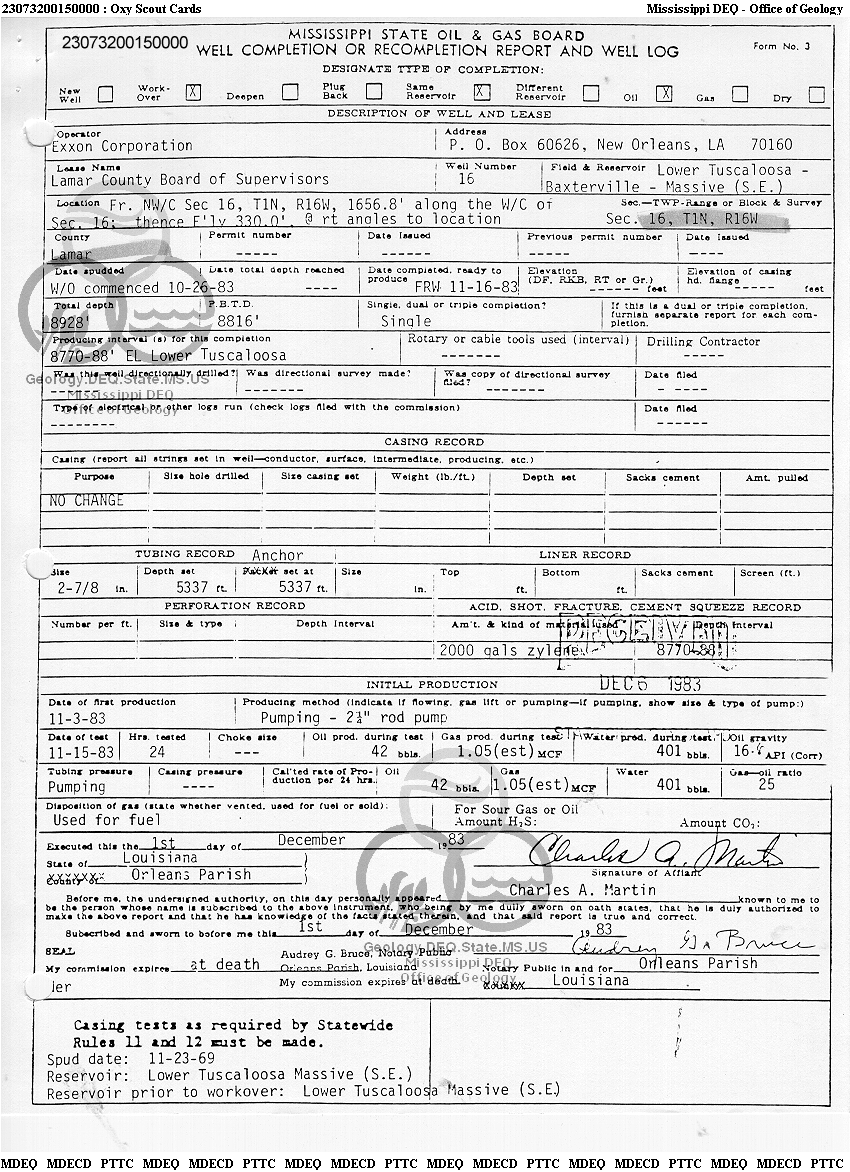 23073200150000 : Oxy Scout Cards Mississippi DEQ - Office of Geology
23073200150000
MISSISSIPPI STATE OIL & GAS BOARD
WELL COMPLETION OR RECOMPLETION REPORT AND WELL LOG
Form No. 3
DESIGNATE TYPE OF COMPLETION:
New Well Work-Over X Deepen Plug Back Same Reservoir X Different Reservoir Oil X Gas Dry
DESCRIPTION OF WELL AND LEASE
Operator Address
Exxon Corporation P. O. Box 60626, New Orleans, LA 70160
Lease Name Well Number Field & Reservoir Lower Tuscaloosa -
Lamar County Board of Supervisors 16 Baxterville - Massive (S.E.)
Location Fr. NW/C Sec 16, T1N, R16W, 1656.8' along the W/C of Sec.—TWP-Range or Block & Survey
Sec. 16; thence E'ly 330.0', @ rt angles to location Sec. 16, T1N, R16W
County Permit number Date Issued Previous permit number Date issued
Lamar ----- ------ ------ ----
Date spudded Date total depth reached Date completed, ready to produce Elevation (DF, RKB, RT or Gr.) Elevation of casing hd. flange
W/O commenced 10-26-83 ---- FRW 11-16-83 ------- feet ----- feet
Total depth P.B.T.D. Single, dual or triple completion? If this is a dual or triple completion, furnish separate report for each completion.
8928' 8816' Single
Producing interval (s) for this completion Rotary or cable tools used (interval) Drilling Contractor
8770-88' EL Lower Tuscaloosa ------- -----
Was this well directionally drilled? Was directional survey made? Was copy of directional survey filed? Date filed
------ ------- ------- - ----
Type of electrical or other logs run (check logs filed with the commission) Date filed
-------- ------
Geology.DEQ.State.MS.US
Mississippi DEQ
Office of Geology
CASING RECORD
Casing (report all strings set in well—conductor, surface, intermediate, producing, etc.)
Purpose Size hole drilled Size casing set Weight (lb./ft.) Depth set Sacks cement Amt. pulled
NO CHANGE
TUBING RECORD Anchor LINER RECORD
Size Depth set Packer set at Size Top Bottom Sacks cement Screen (ft.)
2-7/8 in. 5337 ft. 5337 ft. in. ft. ft.
PERFORATION RECORD ACID, SHOT, FRACTURE, CEMENT SQUEEZE RECORD
Number per ft. Size & type Depth Interval Am't. & kind of material used Depth Interval
2000 gals zylene 8770-88'
RECEIVED
DEC 6 1983
INITIAL PRODUCTION
Date of first production Producing method (indicate if flowing, gas lift or pumping—if pumping, show size & type of pump:)
11-3-83 Pumping - 2¼" rod pump
Date of test Hrs. tested Choke size Oil prod. during test Gas prod. during test Water prod. during test Oil gravity
11-15-83 24 --- 42 bbls. 1.05(est) MCF 401 bbls. 16.6 API (Corr)
Tubing pressure Casing pressure Cal'ted rate of Production per 24 hrs. Oil Gas Water Gas—oil ratio
Pumping ---- 42 bbls. 1.05(est) MCF 401 bbls. 25
Disposition of gas (state whether vented, used for fuel or sold): For Sour Gas or Oil
Used for fuel Amount H₂S: Amount CO₂:
Executed this the 1st day of December 1983 Charles A. Martin
State of Louisiana ) Signature of Affiant
County of Orleans Parish ) Charles A. Martin
Before me, the undersigned authority, on this day personally appeared known to me to
be the person whose name is subscribed to the above instrument, who being by me dully sworn on oath states, that he is duly authorized to
make the above report and that he has knowledge of the facts stated therein, and that said report is true and correct.
Subscribed and sworn to before me this 1st day of December 1983 Audrey G. Bruce
SEAL Audrey G. Bruce, Notary Public
My commission expires at death Orleans Parish, Louisiana Notary Public in and for Orleans Parish
My commission expires at death. Louisiana
Geology.DEQ.State.MS.US
Mississippi DEQ
Office of Geology
ler
Casing tests as required by Statewide
Rules 11 and 12 must be made.
Spud date: 11-23-69
Reservoir: Lower Tuscaloosa Massive (S.E.)
Reservoir prior to workover: Lower Tuscaloosa Massive (S.E.)
MDEQ MDECD PTTC MDEQ MDECD PTTC MDEQ MDECD PTTC MDEQ MDECD PTTC MDEQ MDECD PTTC MDEQ MDECD PTTC